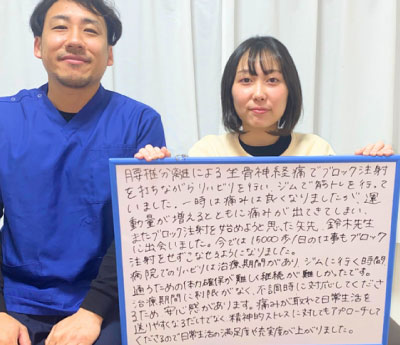 腰椎分離による坐骨神経痛でブロック注射
を打ちながらリハビリを行い、ジムで筋トレを行って
いました。一時は痛みは良くなりましたが、運
動量が増えるとともに痛みが出てきてしまい、
またブロック注射を始めようと思った矢先、鈴木先生
に出会いました。今では15000歩/日の仕事もブロック
注射をせずこなせるようになりました。
病院でのリハビリは治療期間があり、ジムに行く時間
通うための体力確保が難しく継続が難しかったです。
治療期間に制限がなく、不調時に対応してくださ
るため安心感があります。痛みが取れて日常生活を
送りやすくなるだけでなく精神的ストレスに対してもアプローチして
くださるので日常生活の満足度や充実度が上がりました。